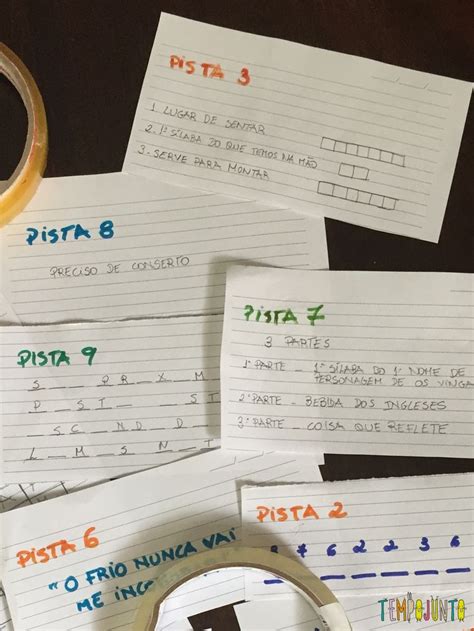 PISTA 3
1. LUGAR DE SENTAR
2. 1ª SÍLABA DO QUE TEMOS NA MÃO
3. SERVE PARA MONTAR
PISTA 8
PRECISO DE CONSERTO
PISTA 7
3 PARTES
1ª PARTE _ 1ª SÍLABA DO 1º NOME DE
PERSONAGEM DE OS VINGA
2ª PARTE - BEBIDA DOS INGLESES
3ª PARTE _ COISA QUE REFLETE
PISTA 9
S _ _ _ Q R _ X _ M
P _ S T _ _ _ S T
_ S C _ N D _ D
L _ M _ S _ N T _
PISTA 6
"O FRIO NUNCA VAI
ME
PISTA 2
7 6 2 2 3 6
TEMPOJUNTO